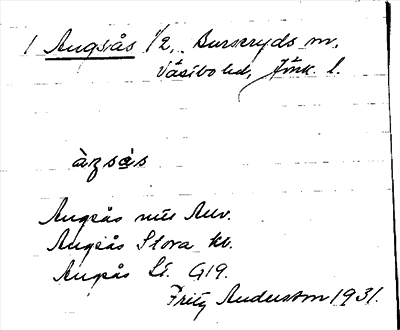 1 Augsås 1/2, Burseryds sn,
Västbo hd, Jönk. l.
àzsås
Augsås mtl Auv.
Augsås Stora kv.
Augsås St. G19.
Fritz Anderson 1931.